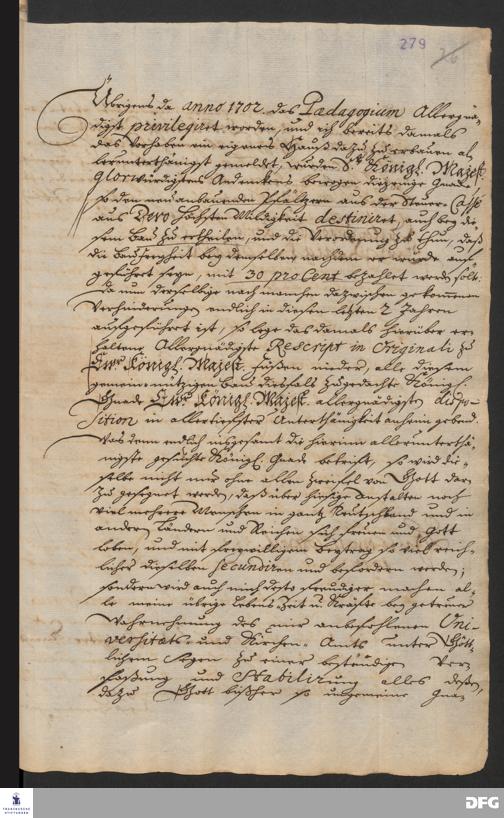 279
Übrigens da anno 1702 das Paedagogium Allergnä-
digst privilegiret worden, und ich bereits damals
das Vorhaben ein eigenes Hauß dazu zu erbauen al-
lerunterthänigst gemeldet, wurden Sr. Königl. Majest.
Glorwürdigsten Andenckens bewogen diejenige Gnade
so den neuanbauenden Pfältzern aus der Steuer-Casse
aus Dero höchsten Mildigkeit destiniret, auch bey die-
sem Bau zu ertheilen, und die Verordnung zu thun, daß
die Baufreyheit bey demselben nachdem er würde auf-
geführet seyn, mit 30 pro Cent bezahlet werden solt.
Da nun derselbige nach manchen dazwischen gekommenen
Verhinderungen endlich in diesen letzten 2 Jahren
aufgeführet ist, so lege das damals hierüber er-
haltene Allergnädigste Rescript in Originali zu
Ewr. Königl. Majest. Füßen nieder, alle diesem
gemeinnützigen Bau dießfals zugedachte Königl.
Gnade Ewr. Königl. Majest. allergnädigsten dispo-
sition in allertieffster Unterthänigkeit anheim gebend.
Was denn endlich insgesamt die hierinn allerunterthä-
nigste gesuchte Königl. Gnade betrifft, so wird die-
selbe nicht nur ohne allen Zweifel von Gott da-
zu gesegnet werden, daß über hiesige Anstalten noch
viel mehrere Menschen in gantz Teutschland und in
andern Ländern und Reichen sich freuen und Gott
loben, und mit freywilligem Beytrag so viel reich-
licher dieselben secundiren und befördern werden;
sondern wird auch mich desto freudiger machen al-
le meine übrige Lebens-Zeit u. Kräfte bey getreuer
Wahrnehmung des mir anbefohlenen Uni-
versitaets- und Kirchen-Amts unter Gött-
lichem Segen zu einer beständigen Ver-
faßung und Stabilirung alles deßen,
dazu Gott bißher so ungemeine Gna-
FRANCKESCHE
STIFTUNGEN
DFG